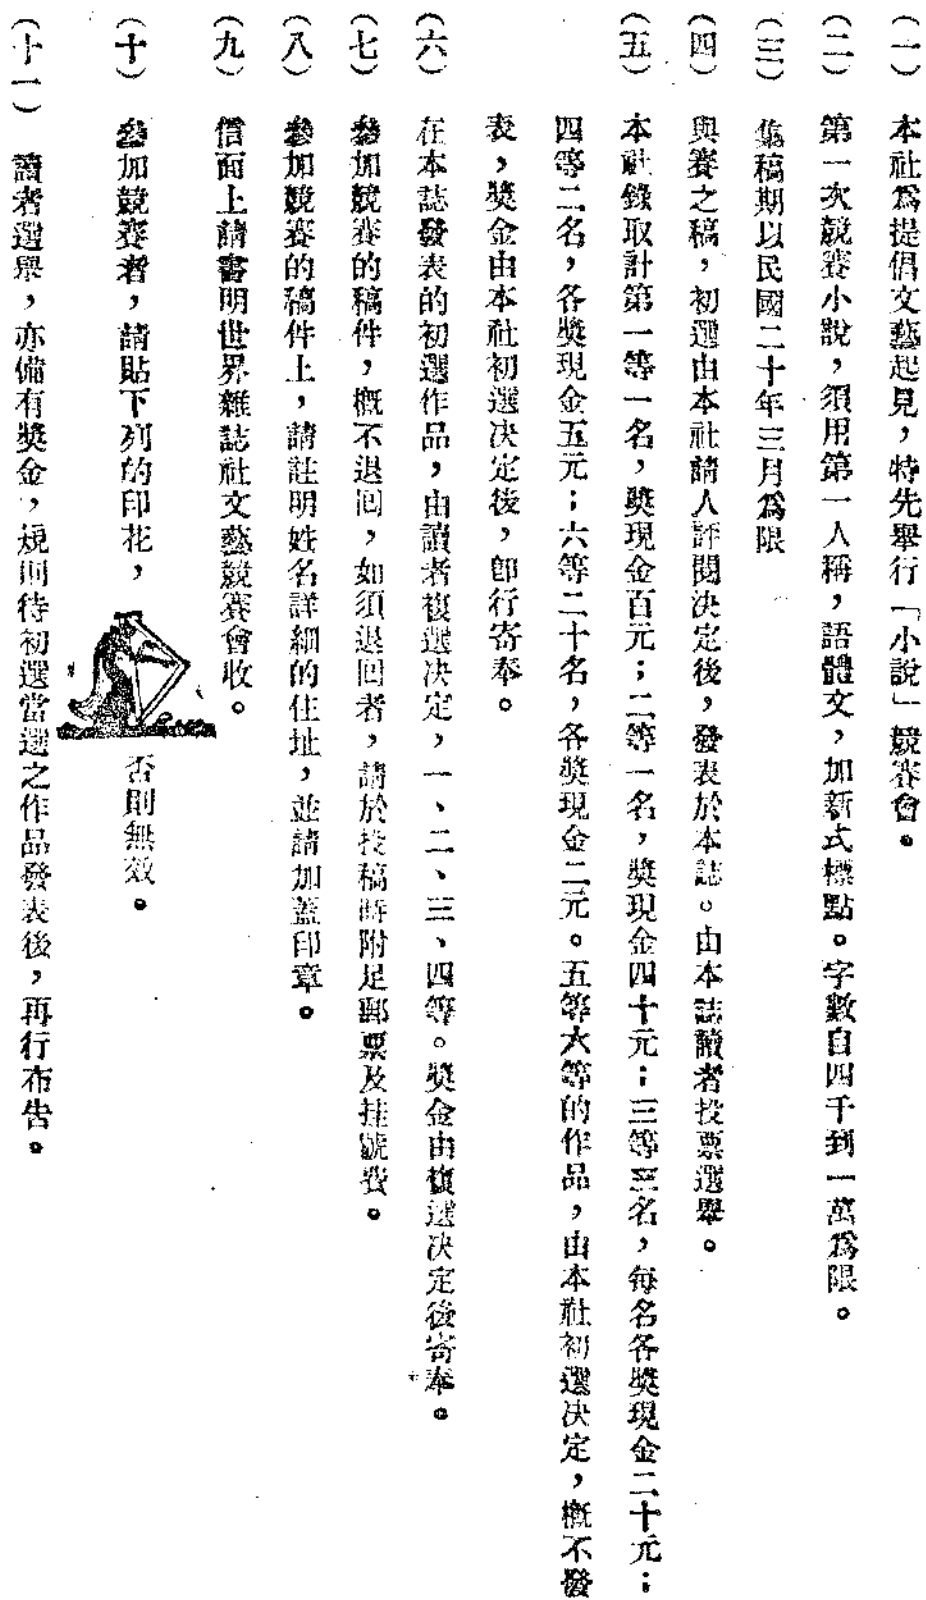 (一)　本社爲提倡文藝起見，特先舉行「小說」競賽會。
(二)　第一次競賽小說，須用第一人稱，語體文，加新式標點。字數自四千到一萬爲限。
(三)　集稿期以民國二十年三月爲限
(四)　與賽之稿，初選由本社請人評閱决定後，發表於本誌。由本誌讀者投票選舉。
(五)　本社錄取計第一等一名，獎現金百元；二等一名，獎現金四十元；三等三名，每名各獎現金二十元；
四等二名，各獎現金五元；六等二十名，各獎現金二元。五等六等的作品，由本社初選决定，概不發
表，獎金由本社初選决定後，卽行寄奉。
(六)　在本誌發表的初選作品，由讀者複選决定，一、二、三、四等。獎金由複選决定後寄奉。
(七)　參加競賽的稿件，概不退回，如須退回者，請於投稿時附足郵票及挂號費。
(八)　參加競賽的稿件上，請註明姓名詳細的住址，並請加蓋印章。
(九)　信面上請書明世界雜誌社文藝競賽會收。
(十)　參加競賽者，請貼下列的印花，否則無效。
(十一)　讀者選舉，亦備有獎金，規則待初選當選之作品發表後，再行布告。